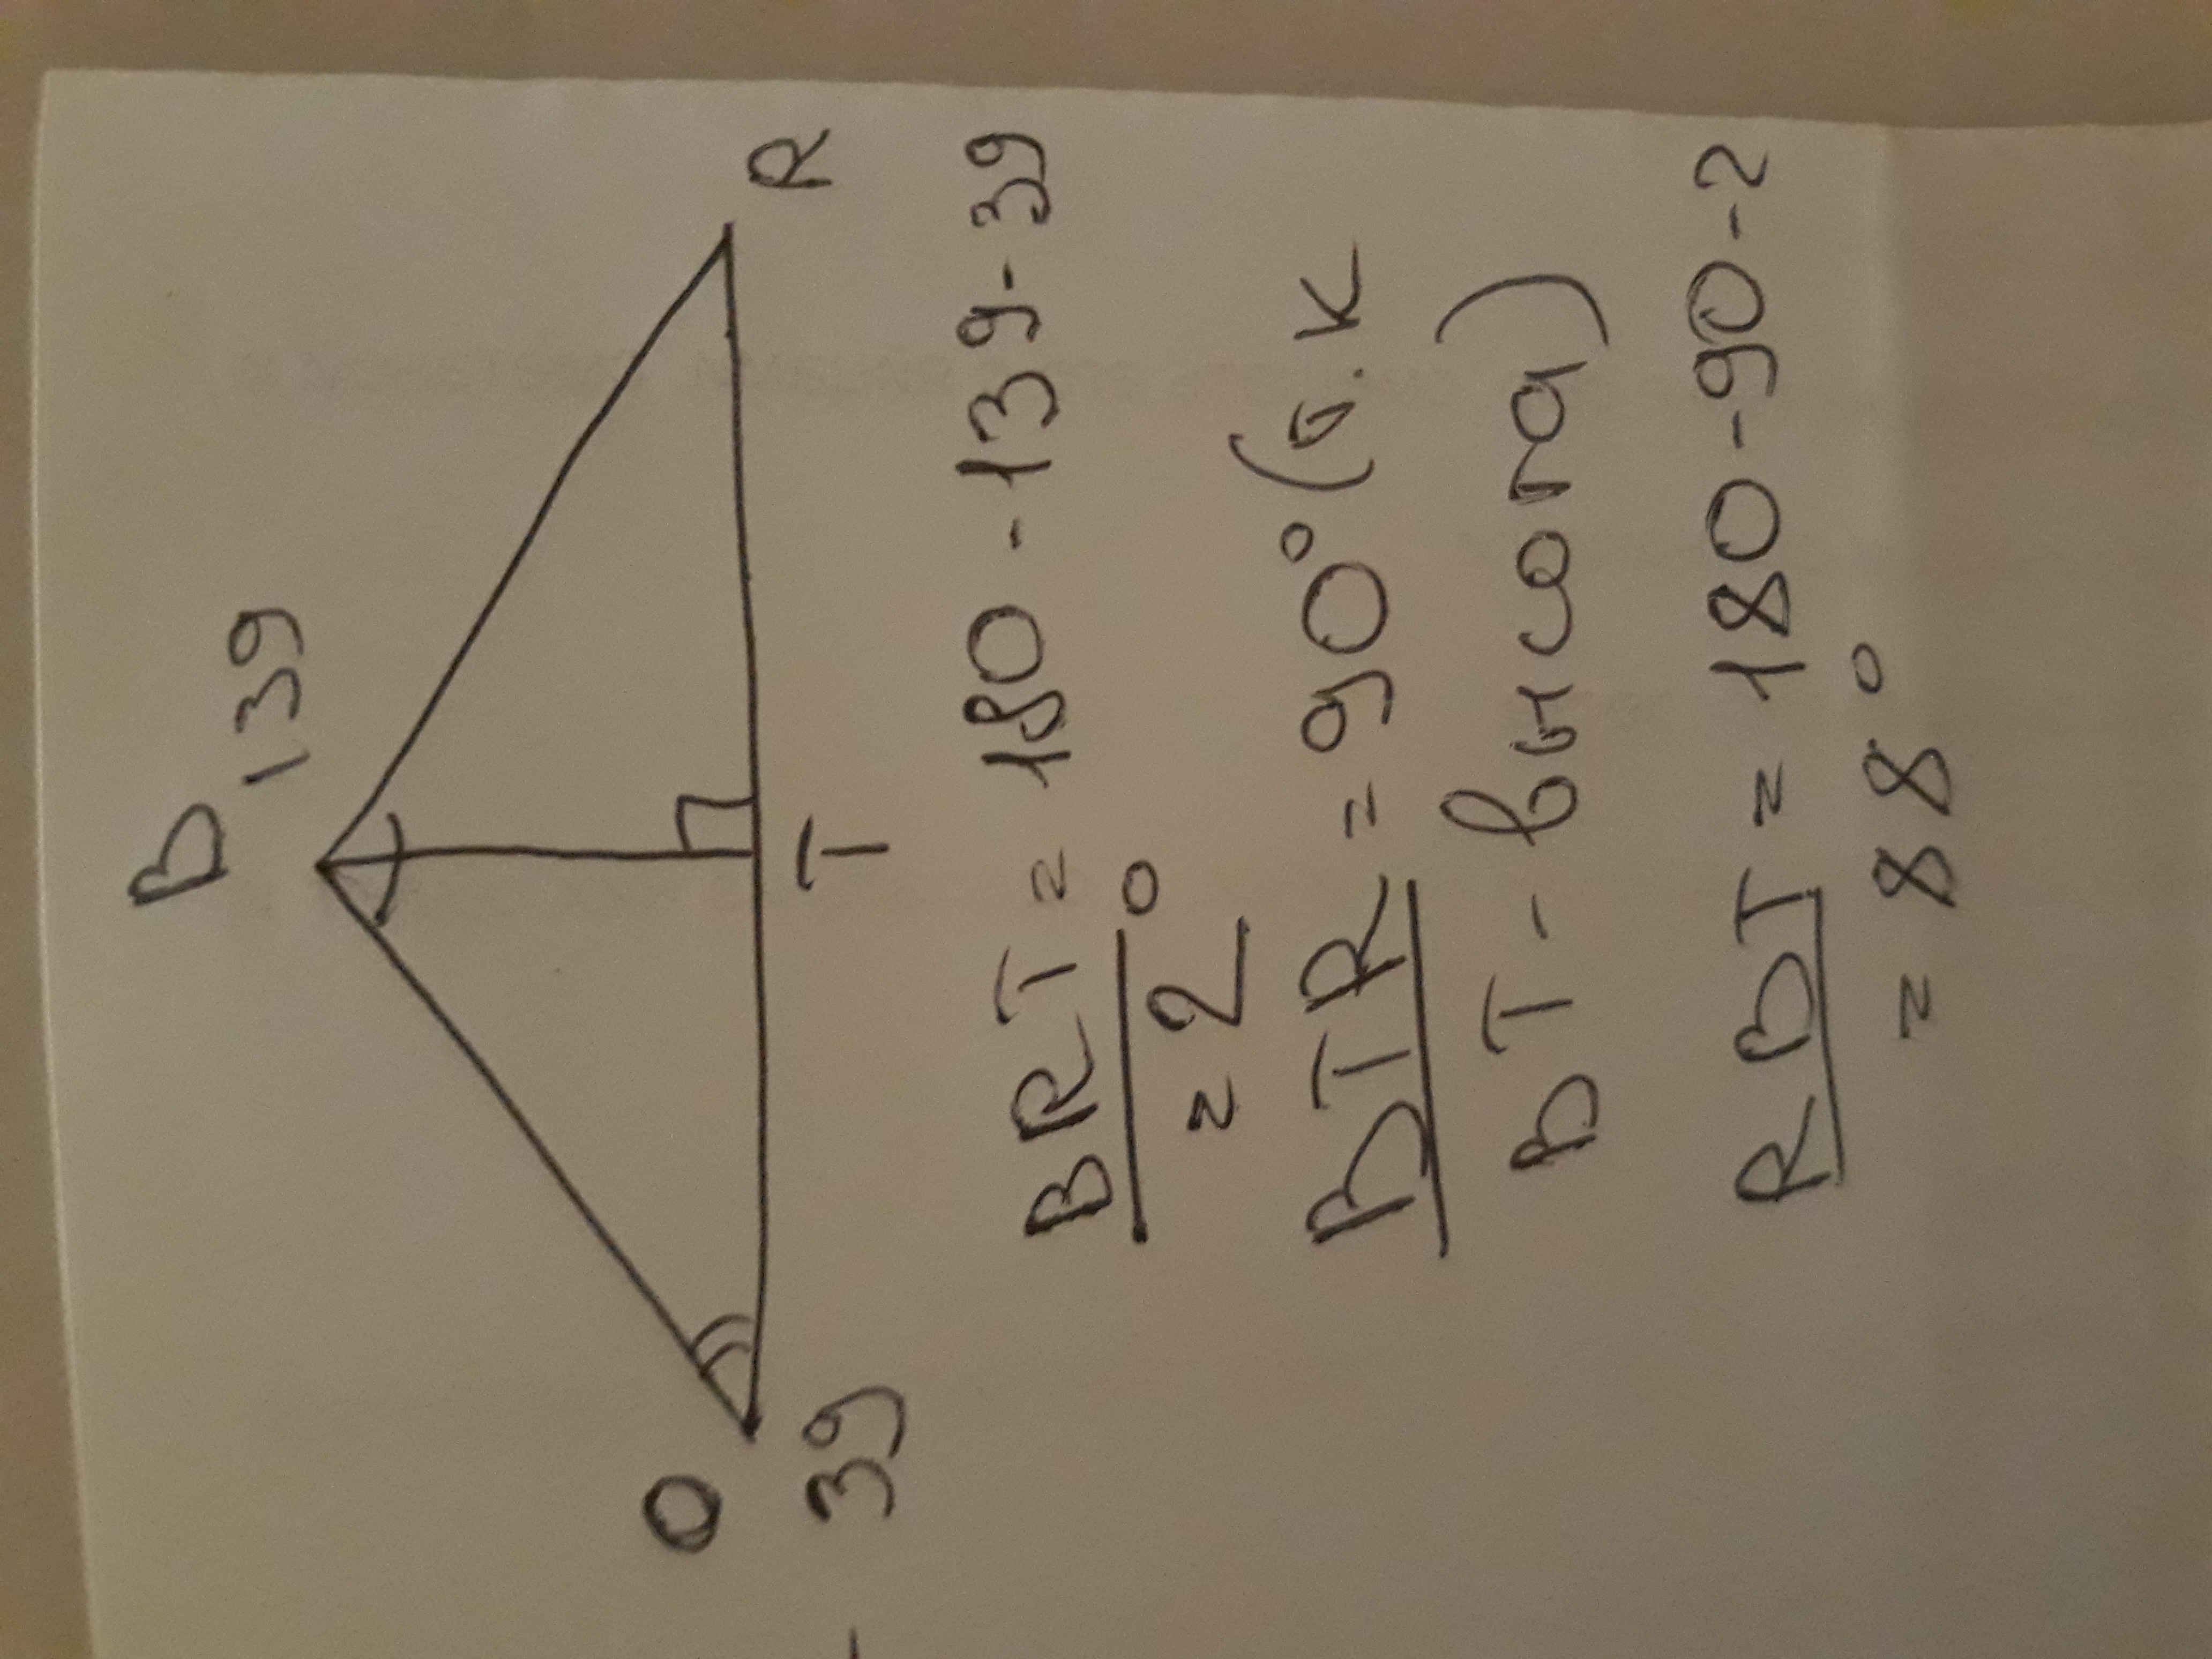 B 139
R
O
T
39
BRT = 180 - 139 - 39
= 2°
BTR = 90° (т.к
BT - высота)
RBT = 180 - 90 - 2
= 88°